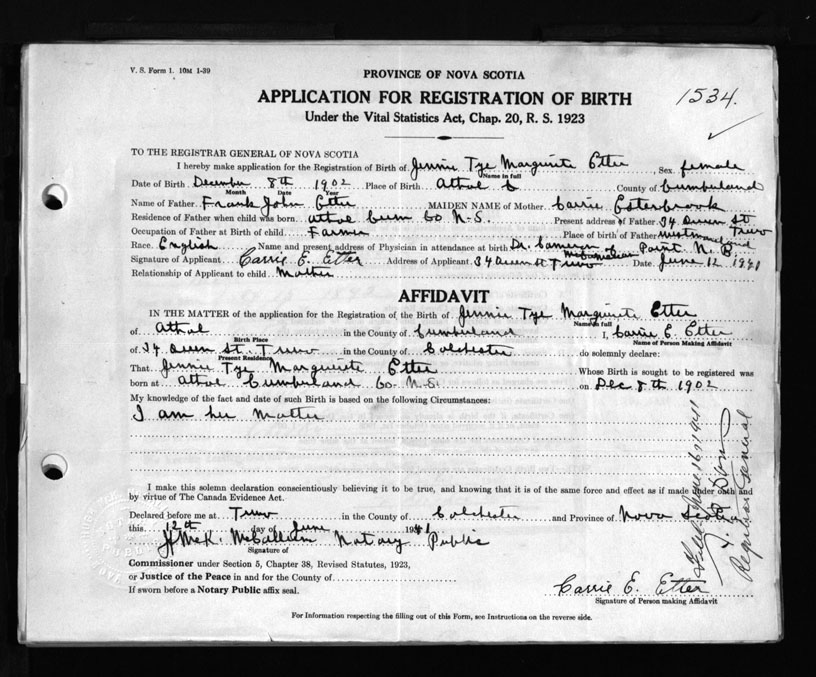 V. S. Form 1. 10M 1-39
PROVINCE OF NOVA SCOTIA
APPLICATION FOR REGISTRATION OF BIRTH
1534.
Under the Vital Statistics Act, Chap. 20, R. S. 1923
TO THE REGISTRAR GENERAL OF NOVA SCOTIA
I hereby make application for the Registration of Birth of Jennie Tye Marguirite Etter Sex female
Name in full
Date of Birth December 8th 1902 Place of Birth Athol County of Cumberland
Month Date Year
Name of Father Frank John Etter MAIDEN NAME of Mother Carrie Esterbrook
Residence of Father when child was born Athol Cum Co N-S. Present address of Father 34 Queen St Truro
Occupation of Father at Birth of child Farmer Place of birth of Father Westmorland Point N. B.
Race English Name and present address of Physician in attendance at birth Dr. Cameron of
Signature of Applicant Carrie E. Etter Address of Applicant 34 Queen St Truro Date June 12 1941
Relationship of Applicant to child Mother
AFFIDAVIT
IN THE MATTER of the application for the Registration of the Birth of Jennie Tye Marguirite Etter
Name in full
of Athol in the County of Cumberland I, Carrie E. Etter
Birth Place Name of Person Making Affidavit
of 34 Queen St. Truro in the County of Colchester do solemnly declare:
Present Residence
That Jennie Tye Marguirite Etter Whose Birth is sought to be registered was
born at Athol Cumberland Co. N-S. on Dec 8th 1902
My knowledge of the fact and date of such Birth is based on the following Circumstances:
I am her Mother
I make this solemn declaration conscientiously believing it to be true, and knowing that it is of the same force and effect as if made under oath and
by virtue of The Canada Evidence Act.
Declared before me at Truro in the County of Colchester and Province of Nova Scotia
this 12th day of June 1941
McK. McCallum Notary Public
Signature of
Commissioner under Section 5, Chapter 38, Revised Statutes, 1923,
or Justice of the Peace in and for the County of
If sworn before a Notary Public affix seal.
Carrie E. Etter
Signature of Person making Affidavit
For Information respecting the filling out of this Form, see Instructions on the reverse side.
Filed June 16th 1941
Registrar General